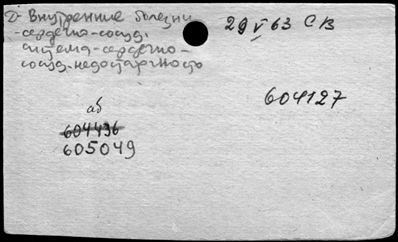 Внутренние болезни 29 V 63 СВ
-сердечно-сосуд.
система-сердечно-
сосуд.недостаточность
604127
аб
604436
605049